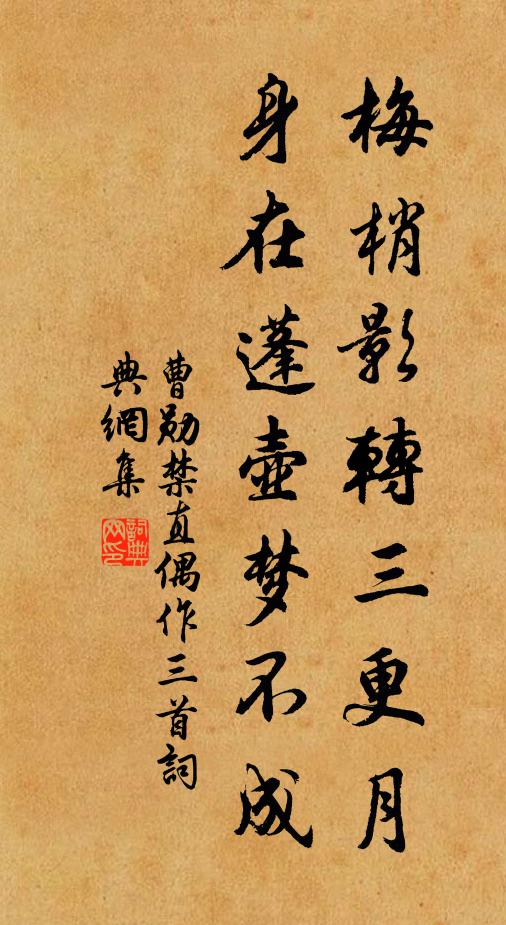 梅梢影轉三更月
身在蓬壺梦不成
曹勋禁直偶作三首詞
典網集
詞典网印